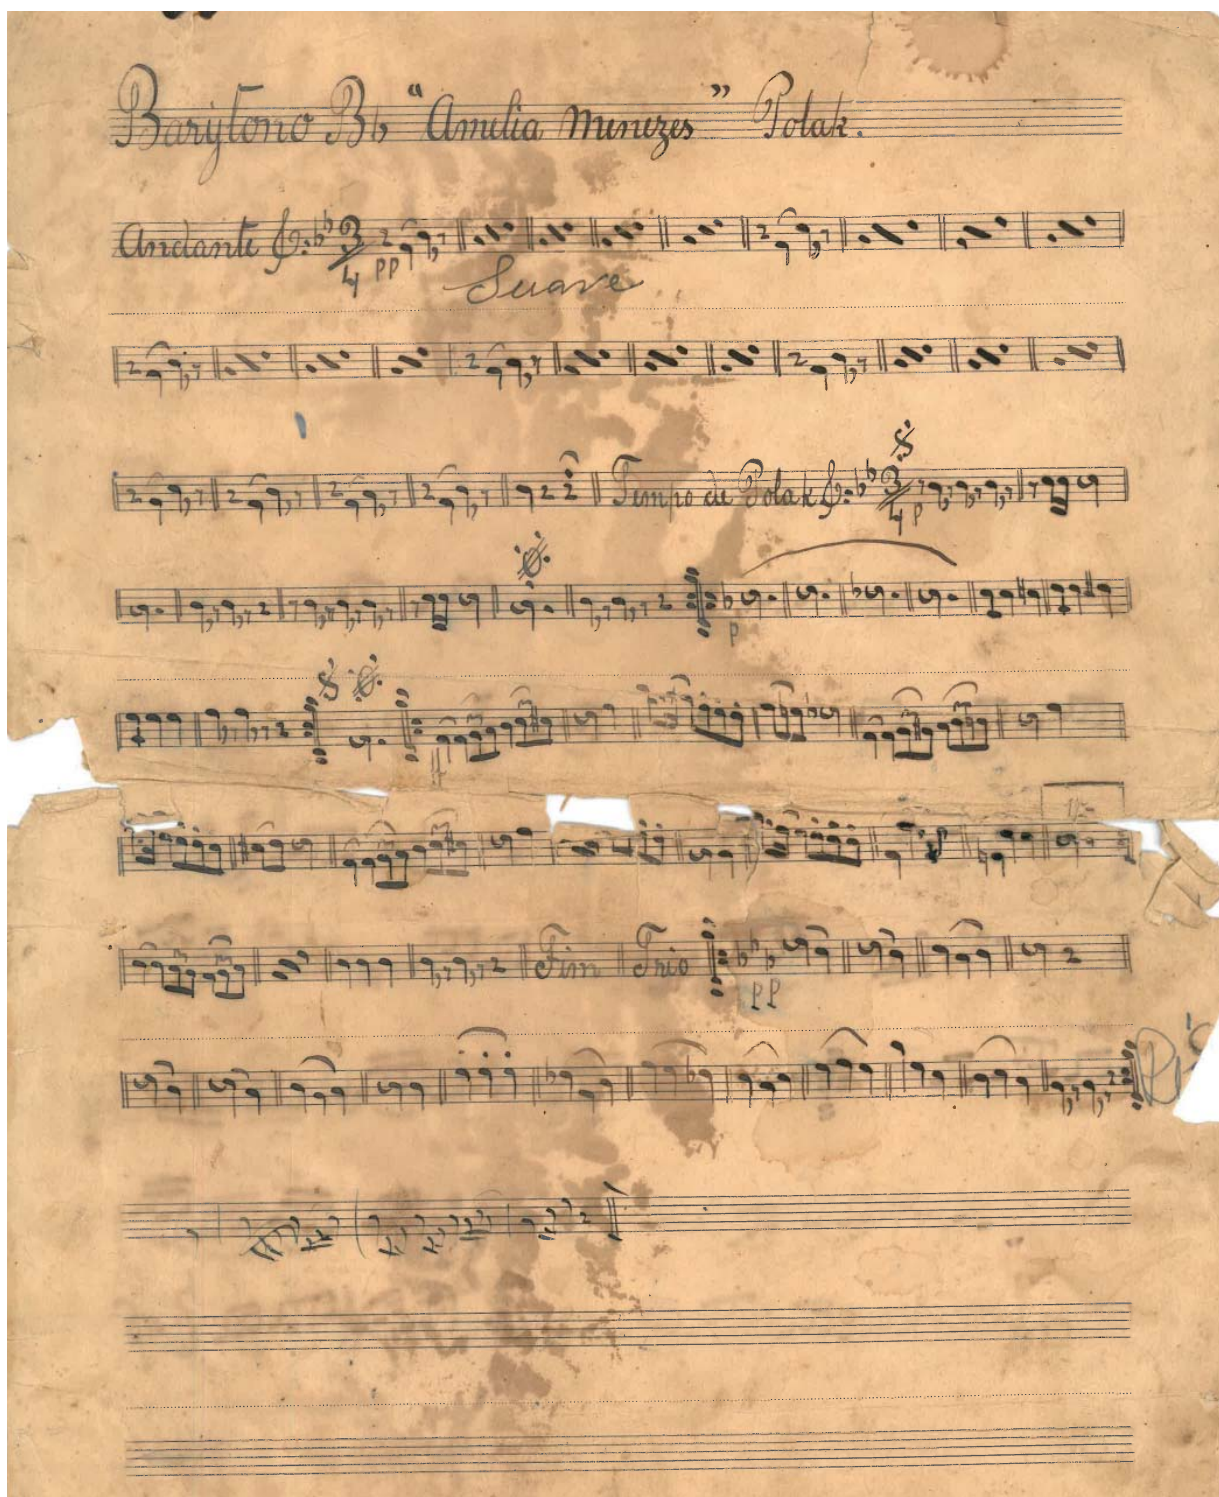 Barytono Bb "Amelia Menezes" Polak.
Andante 3/4 pp
Suave
Tempo de Polak 3/4 p
p
ff
Fim Trio
pp